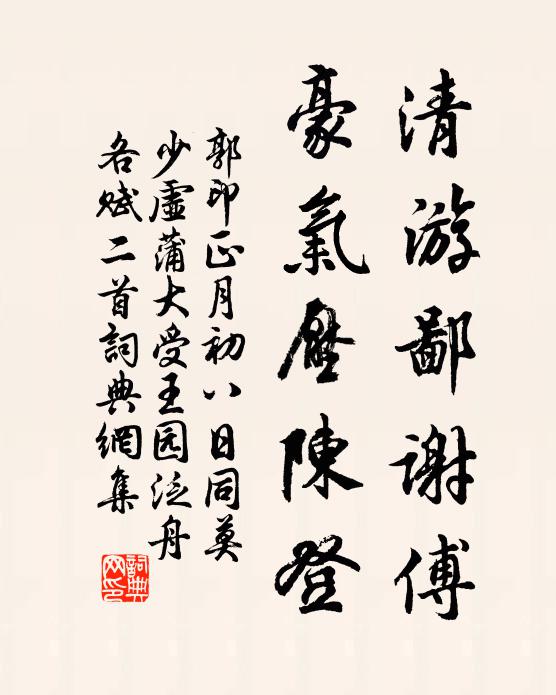 清游鄙谢傅
豪氣壓陳登
郭印正月初八日同莫
少虛蒲大受王园泛舟
各赋二首詞典網集
詞典
网印